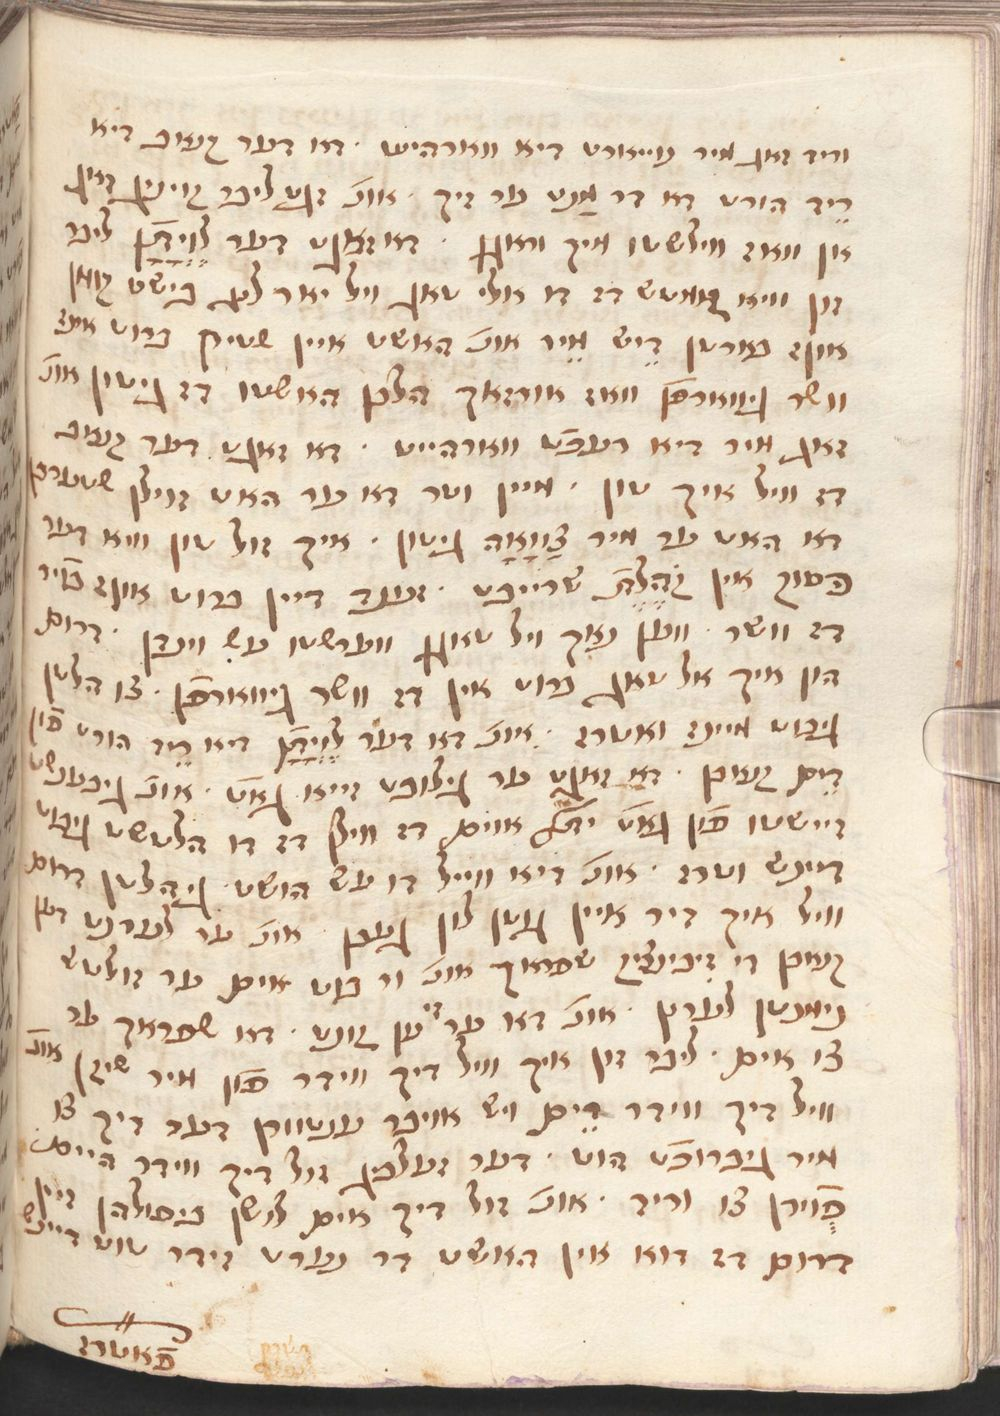 וריד זאג מיר נוייארט דיא ווארהיט . דא דער קנאב דיא
ריד הורט דא דר מנט ער זיך . אונ' זגט ליבר קוינג זאג
אן וואז ווילשטו מיך וראגן . דא זאגט דער לויתן ליבר
זון וויא קומט דז דו אלי טאג ויל יאר לנג בישט קומן
אונז בורטן ביש מיר אונ' האשט איין שטיק ברוט אינז
וושר גיווארפן וואז אורזאך הלבן האשטו דז גיטון אונ'
זאג מיר דיא רעכט ווארהייט . דא זאגט דער קנאב
דז וויל איך טון . מיין וטר דא ער האט זוילן שטערבן
דא האט ער מיר צוואה גיטון . איך זול טון וויא דער
פסוק אין קהלת שרייבט . זענד דיין ברוט אונז ביר
דז וושר . ווען נאך ויל טאגן ווערשטו עש וינדן . דרום
הון איך אל טאג ברוט אין דז וושר גיווארפן . צו הלטן
גיבוט מיינז ואטרז . אונ' דא דער לויתן דיא ריד הורט פון
דעם קנאבן . דא זאגט ער גילובט זייא גאט . אונ' גיבענשט
זיישטו פון גאט ית' אום דז ווילן דז דו הלטשט גיבוט
דיינש וטרז . אונ' דיא ווייל דו עש הושט גיהלטן דרום
וויל איך דיר איין גוטן לון געבן . אונ' ער לערנט דען
קנאבן די זיבנציג שפראך אונ' ור בוט אים ער זולטש
נימנטן לערנן . אונ' דא ערש קונט . דא שפראך ער
צו אים . ליבר זון איך וויל דיך ווידר פון מיר שיקן אונ'
וויל דיך ווידר דעם ויש אויבר ענטוורטן דער דיך צו
מיר גיברוכט הוט . דער זעלביג זול דיך ווידר היים
פוירן צו וריד . אונ' זול דיך אים לושן בפולהן זיין
דרום דז דוא אין האשט דר נערט זידר טוט דיינש
פאטרז